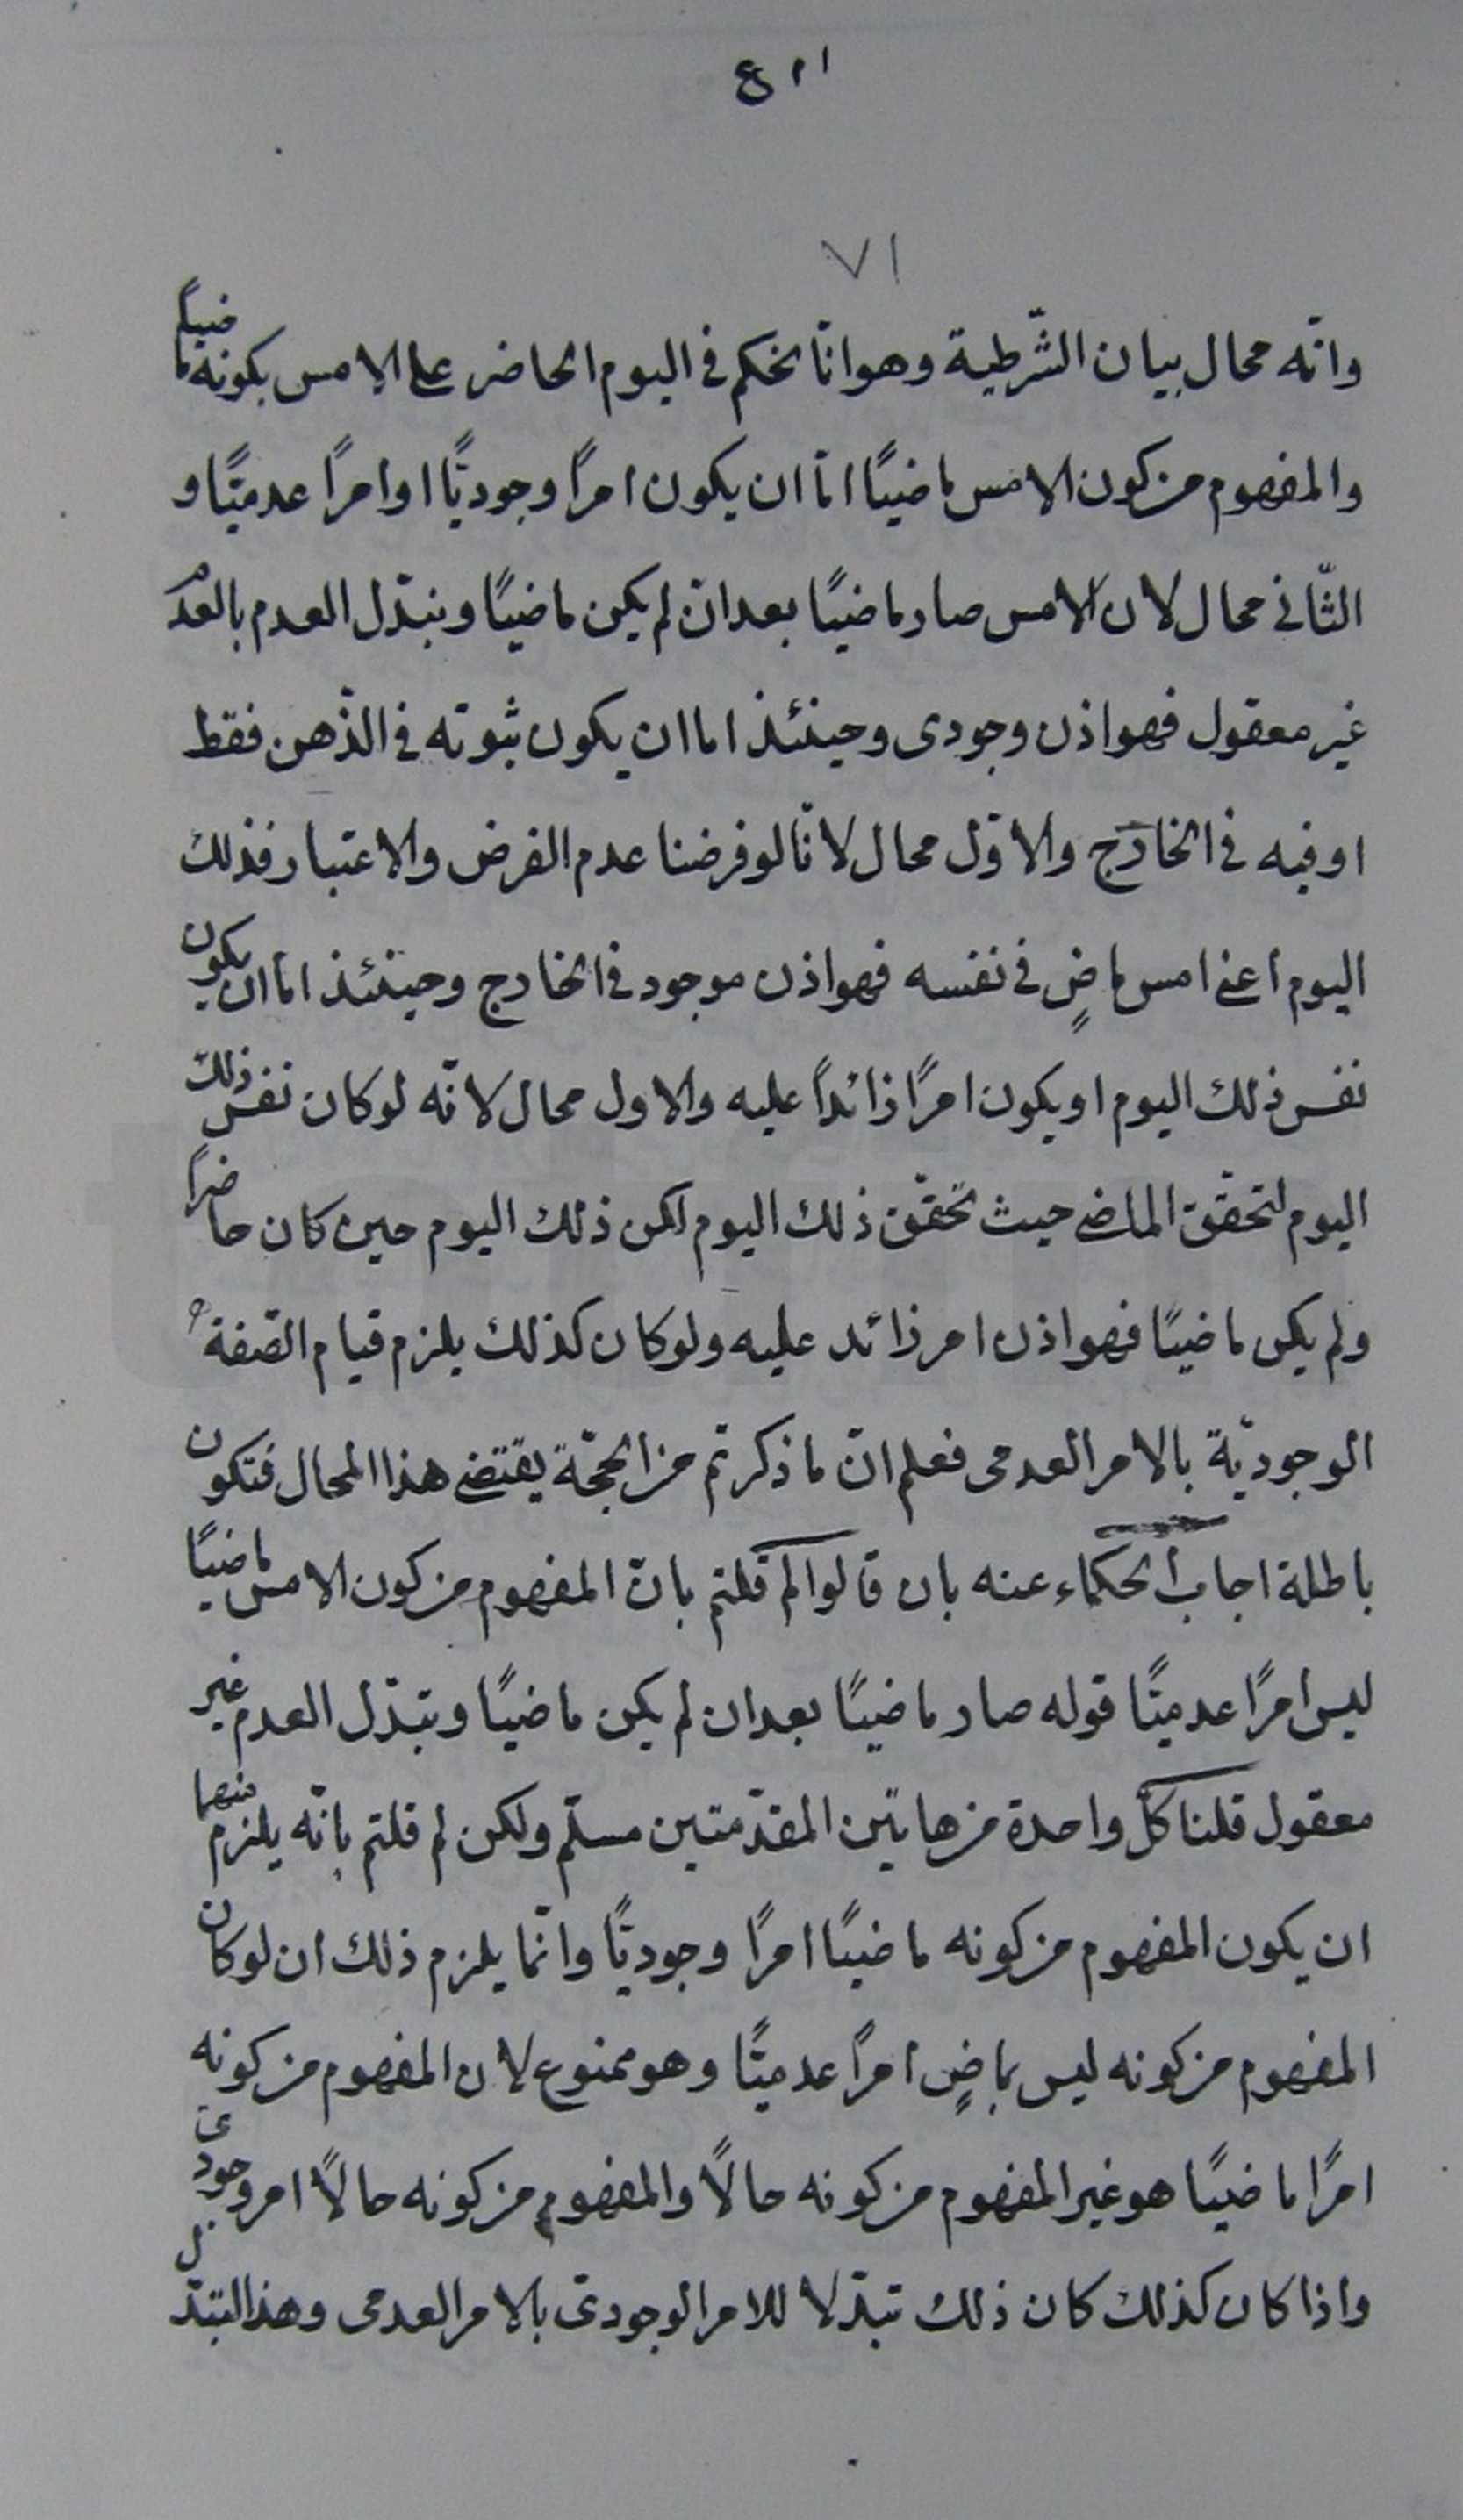 ٧١
وانّه محال بيان الشّرطية وهو انّا نحكم فى اليوم الحاضر على الامس بكونه ماضيًا
والمفهوم من كون الامس ماضيًا امّا ان يكون امرًا وجوديًّا او امرًا عدميًّا و
الثّانى محال لان الامس صار ماضيًا بعد ان لم يكن ماضيًا وتبدّل العدم بالعدم
غير معقول فهو اذن وجودى وحينئذ اما ان يكون ثبوته فى الذّهن فقط
او فيه فى الخارج والاوّل محال لانّا لو فرضنا عدم الفرض والاعتبار فذلك
اليوم اعنى امس ماضٍ فى نفسه فهو اذن موجود فى الخارج وحينئذ اما ان يكون
نفس ذلك اليوم او يكون امرًا زائداً عليه والاول محال لانّه لو كان نفس ذلك
اليوم لتحقق الماضى حيث تحقّق ذلك اليوم لكن ذلك اليوم حين كان حاضرا
ولم يكن ماضيًا فهو اذن امر زائد عليه ولو كان كذلك يلزم قيام الصّفة
الوجوديّة بالامر العدمى فعلم انّ ما ذكرتم من الحجّة يقتضى هذا المحال فتكون
باطلة اجاب الحكماء عنه بان قالوا لم قلتم بانّ المفهوم من كون الامس ماضيًا
ليس امرًا عدميًّا قوله صار ماضيًا بعد ان لم يكن ماضيًا وتبدّل العدم غير
معقول قلنا كلّ واحدة من هاتين المقدّمتين مسلّم ولكن لم قلتم بانّه يلزم منهما
ان يكون المفهوم من كونه ماضيًا امرًا وجوديًّا وانّما يلزم ذلك ان لو كان
المفهوم من كونه ليس بماضٍ امرًا عدميًّا وهو ممنوع لان المفهوم من كونه
امرًا ماضيًا هو غير المفهوم من كونه حالاً والمفهوم من كونه حالاً امر وجودى
واذا كان كذلك كان ذلك تبدّلا للامر الوجودىّ بالامر العدمى وهذا التبدّل